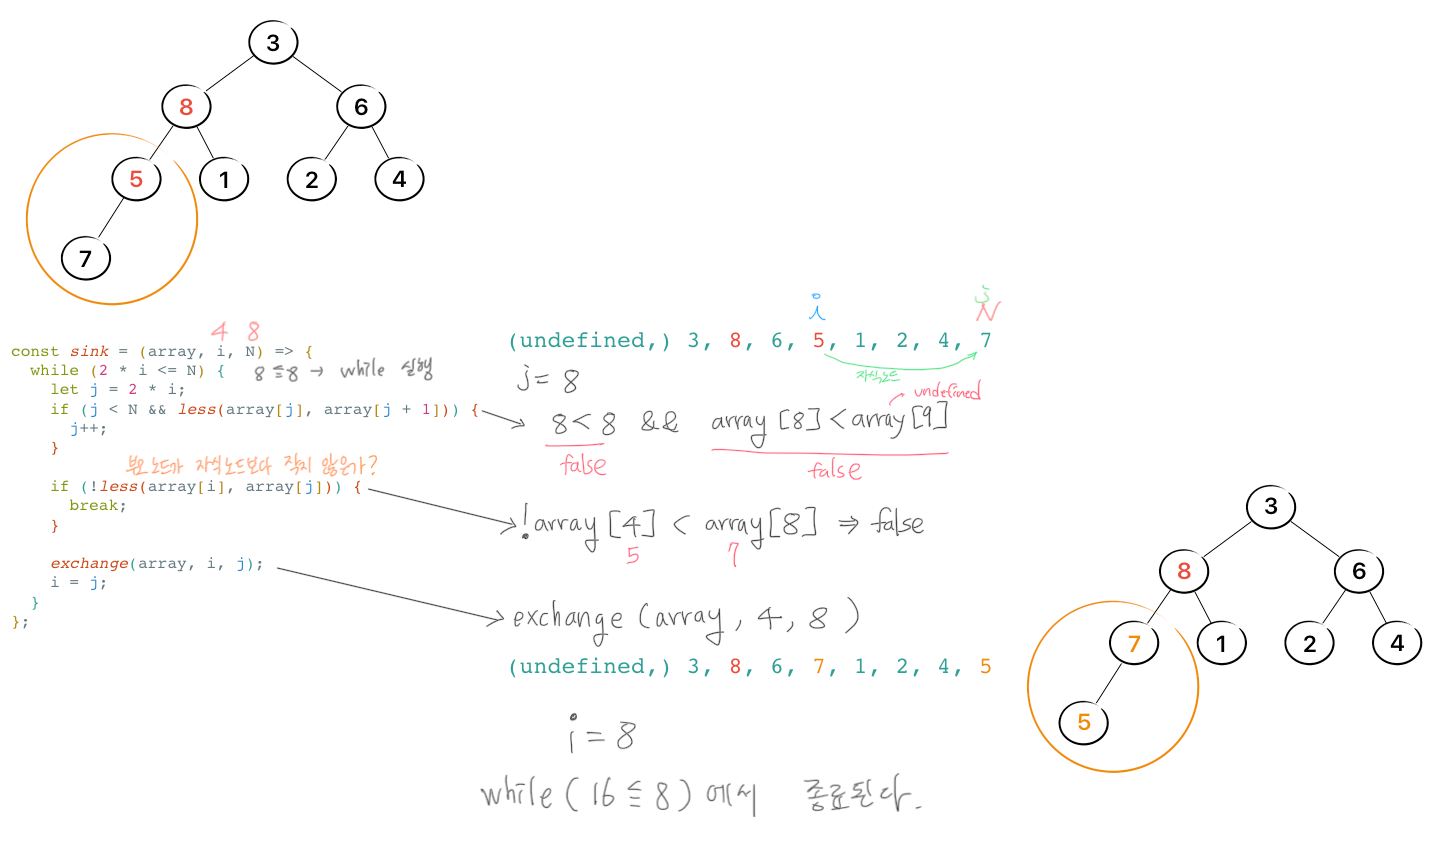 3
8 6
5 1 2 4
7
4 8
const sink = (array, i, N) => {
while (2 * i <= N) { 8≦8 → while 실행
let j = 2 * i;
if (j < N && less(array[j], array[j + 1])) {
j++;
}
부모노드가 자식노드보다 작지 않은가?
if (!less(array[i], array[j])) {
break;
}
exchange(array, i, j);
i = j;
}
};
i j
N
(undefined,) 3, 8, 6, 5, 1, 2, 4, 7
자식노드
j= 8
undefined
8<8 && array[8]<array[9]
false false
!array[4] < array[8] ⇒ false
5 7
exchange (array, 4, 8 )
(undefined,) 3, 8, 6, 7, 1, 2, 4, 5
i = 8
while ( 16 ≦ 8 ) 에서 종료된다.
3
8 6
7 1 2 4
5